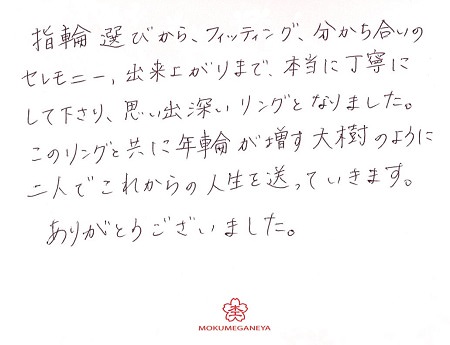 指輪選びから、フィッティング、分かち合いの
セレモニー、出来上がりまで、本当に丁寧に
して下さり、思い出深いリングとなりました。
このリングと共に年輪が増す大樹のように
二人でこれからの人生を送っていきます。
ありがとうございました。
MOKUMEGANEYA